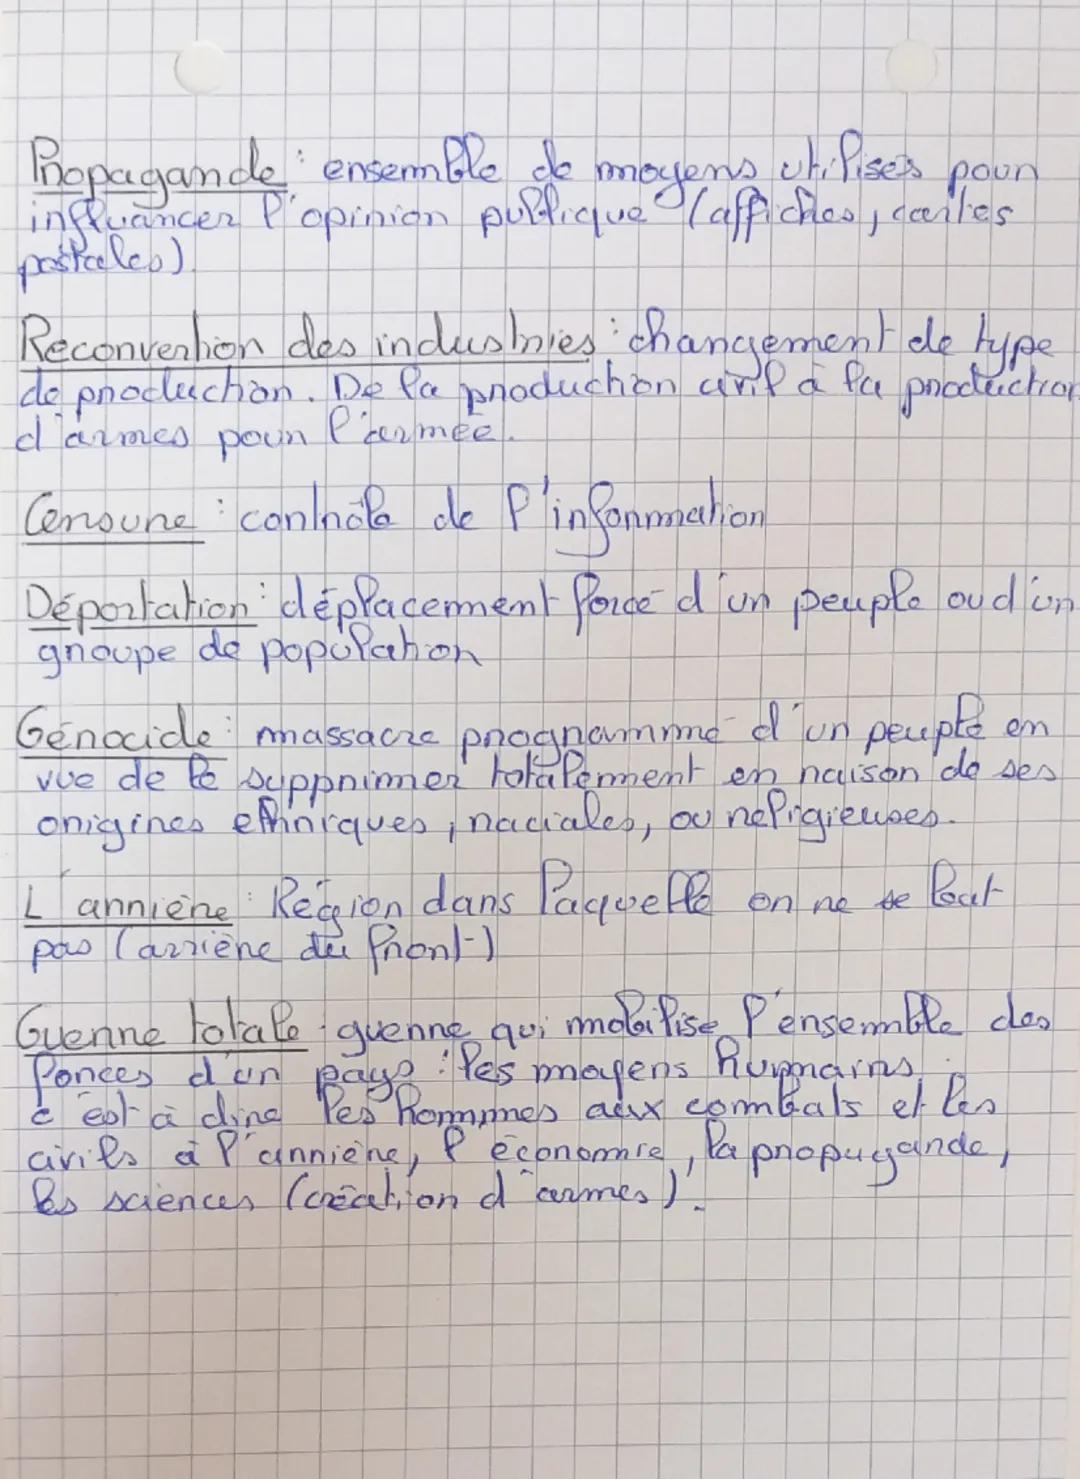 Propagande : ensemble de moyens utilisés pour
influancer l'opinion publique (affiches, cartes
postales)
Reconvertion des industries : changement de type
de production. De la production civil à la production
d'armes pour l'armée.
Censure : contrôle de l'information
Déportation : déplacement forcé d'un peuple ou d'un
groupe de population
Génocide : massacre programmé d'un peuple en
vue de le supprimer totalement en raison de ses
origines ethniques, raciales, ou religieuses.
L'arrière : Région dans laquelle on ne se bat
pas (arrière du front)
Guerre totale : guerre qui mobilise l'ensemble des
forces d'un pays : les moyens humains,
c'est à dire les hommes aux combats et les
civils à l'arrière, l'économie, la propagande,
les sciences (création d'armes).